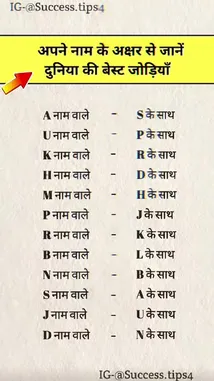 IG-@Success.tips4
अपने नाम के अक्षर से जानें
दुनिया की बेस्ट जोड़ियाँ
A नाम वाले - S के साथ
U नाम वाले - P के साथ
K नाम वाले - R के साथ
H नाम वाले - D के साथ
M नाम वाले - H के साथ
P नाम वाले - J के साथ
R नाम वाले - K के साथ
B नाम वाले - L के साथ
N नाम वाले - B के साथ
S नाम वाले - A के साथ
J नाम वाले - U के साथ
D नाम वाले - N के साथ
IG-@Success.tips4